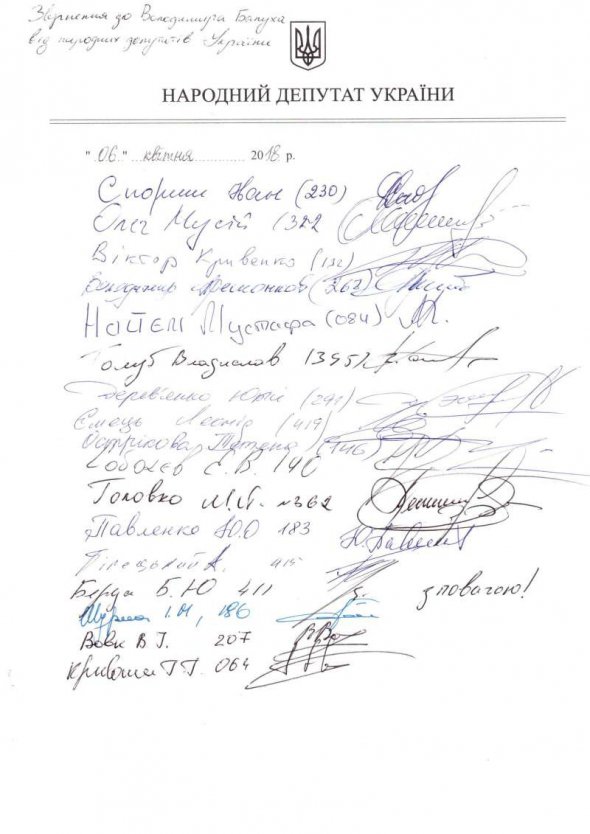 Звернення до Володимира Балуха
від народних депутатів України
НАРОДНИЙ ДЕПУТАТ УКРАЇНИ
"06" квітня 2018 р.
Спориш Іван (230)
Олег Мусій (322
Віктор Кривенко (132)
(262)
Найєм Мустафа (084)
Голуб Владислав 139
Дерев'янко Юрій (291)
Ємець Леонід (419)
Острікова Тетяна (146)
Соболєв С. В. 140
Головко М.Й. №362
Павленко Ю.О 183
Білецький А. 415
Береза Б.Ю 411
з повагою!
І.М, 186
Вовк В І. 207
Кривоша Г.Г. 064